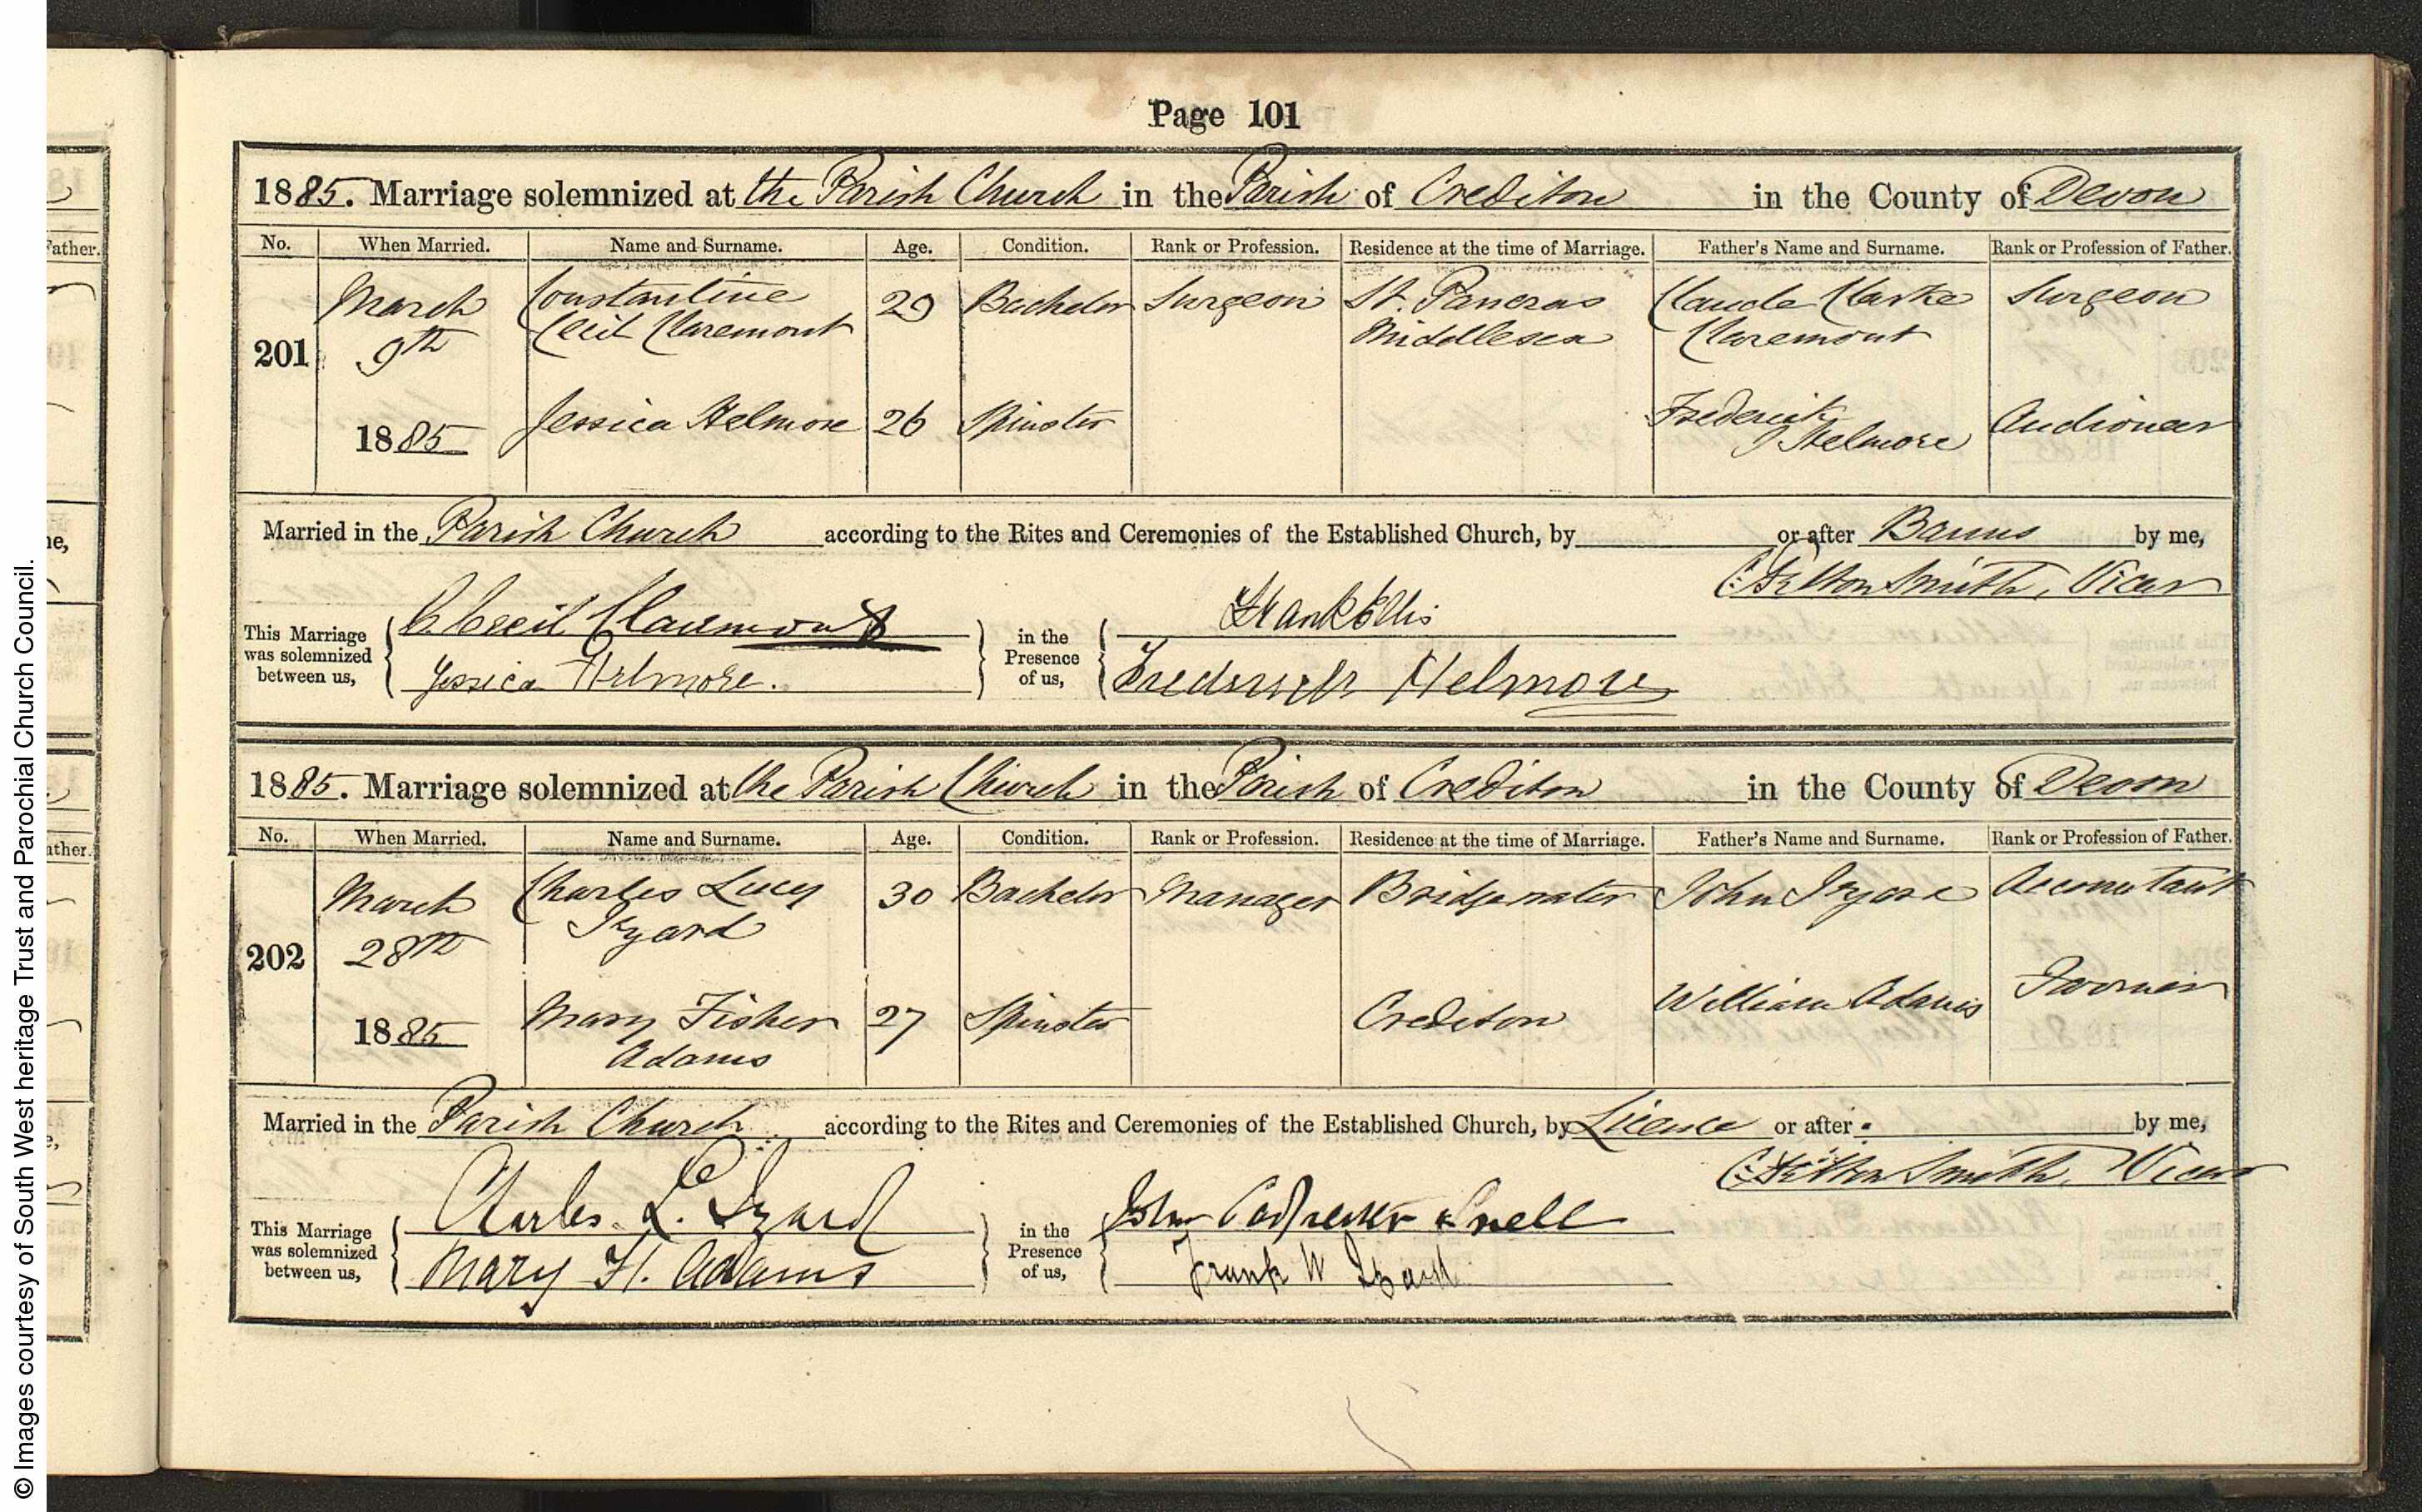 Page 101
1885. Marriage solemnized at the Parish Church in the Parish of Crediton in the County of Devon
No. When Married. Name and Surname. Age. Condition. Rank or Profession. Residence at the time of Marriage. Father's Name and Surname. Rank or Profession of Father.
201 March 9th 1885
Constantine Cecil Claremont 29 Bachelor Surgeon St. Pancras Middlesex Claude Clarke Claremont Surgeon
Jessica Helmore 26 Spinster Frederick Helmore Auctioneer
Married in the Parish Church according to the Rites and Ceremonies of the Established Church, by or after Banns by me,
C: Felton Smith, Vicar
This Marriage was solemnized between us,
C. Cecil Claremont
Jessica Helmore.
in the Presence of us,
Frank Ellis
Frederick Helmore
1885. Marriage solemnized at the Parish Church in the Parish of Crediton in the County of Devon
No. When Married. Name and Surname. Age. Condition. Rank or Profession. Residence at the time of Marriage. Father's Name and Surname. Rank or Profession of Father.
202 March 28th 1885
Charles Lucy Izard 30 Bachelor Manager Bridgwater John Izard Accountant
Mary Fisher Adams 27 Spinster Crediton William Adams Farmer
Married in the Parish Church according to the Rites and Ceremonies of the Established Church, by Licence or after by me,
C: Felton Smith, Vicar
This Marriage was solemnized between us,
Charles L. Izard
Mary F. Adams
in the Presence of us,
John Snell
Frank W Izard
© Images courtesy of South West heritage Trust and Parochial Church Council.
Father.